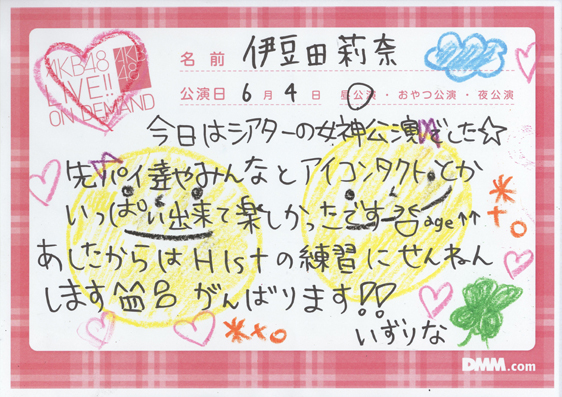 AKB48
LIVE!!
ON DEMAND
AKB48
名前 伊豆田莉奈
公演日 6月4日 昼公演・おやつ公演・夜公演
今日はシアターの女神公演でした☆
先パイ達やみんなとアイコンタクトとか
いっぱい出来て楽しかったです age↑↑
あしたからはH1stの練習にせんねん
します がんばります!!
いずりな
DMM.com